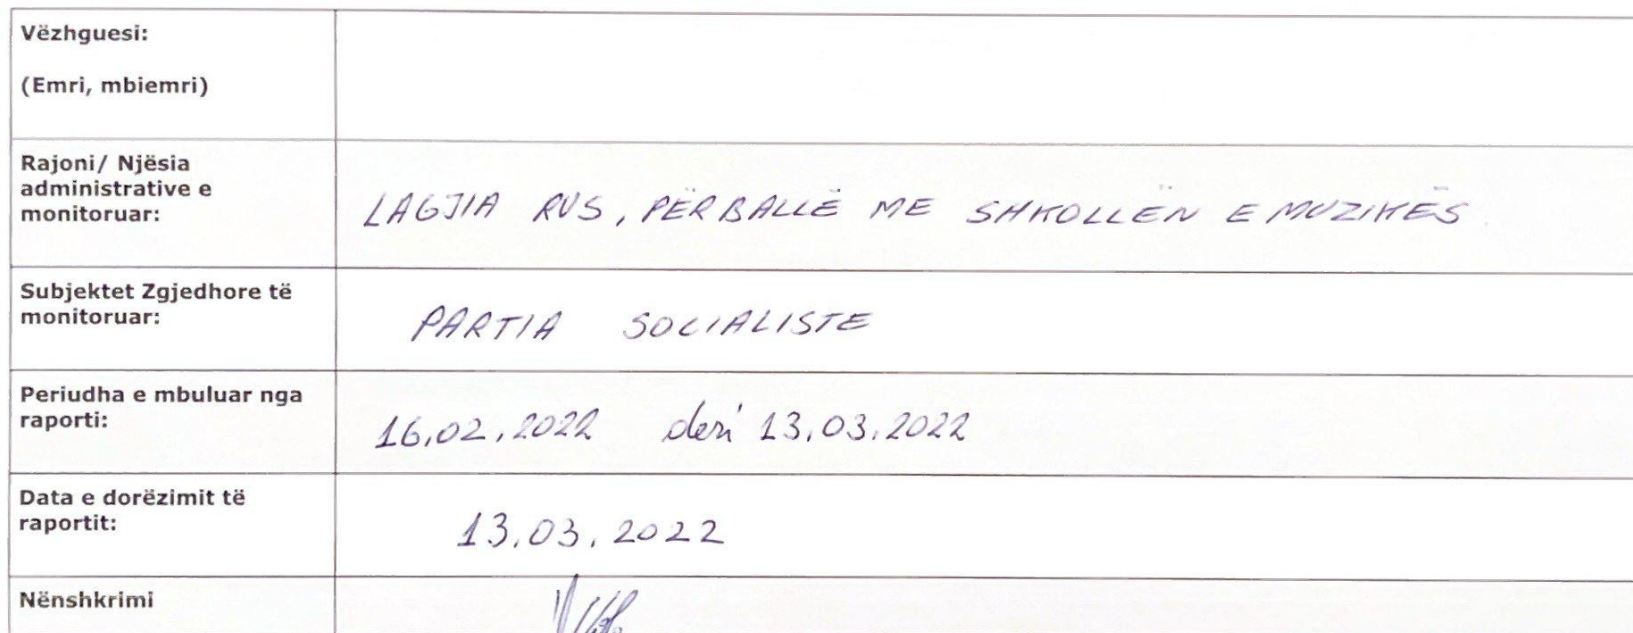 Vëzhguesi:
(Emri, mbiemri)
Rajoni/ Njësia
administrative e
monitoruar:
LAGJIA RUS, PËRBALLË ME SHKOLLËN E MUZIKËS
Subjektet Zgjedhore të
monitoruar:
PARTIA SOCIALISTE
Periudha e mbuluar nga
raporti:
16.02.2022 deri 13.03.2022
Data e dorëzimit të
raportit:
13.03.2022
Nënshkrimi